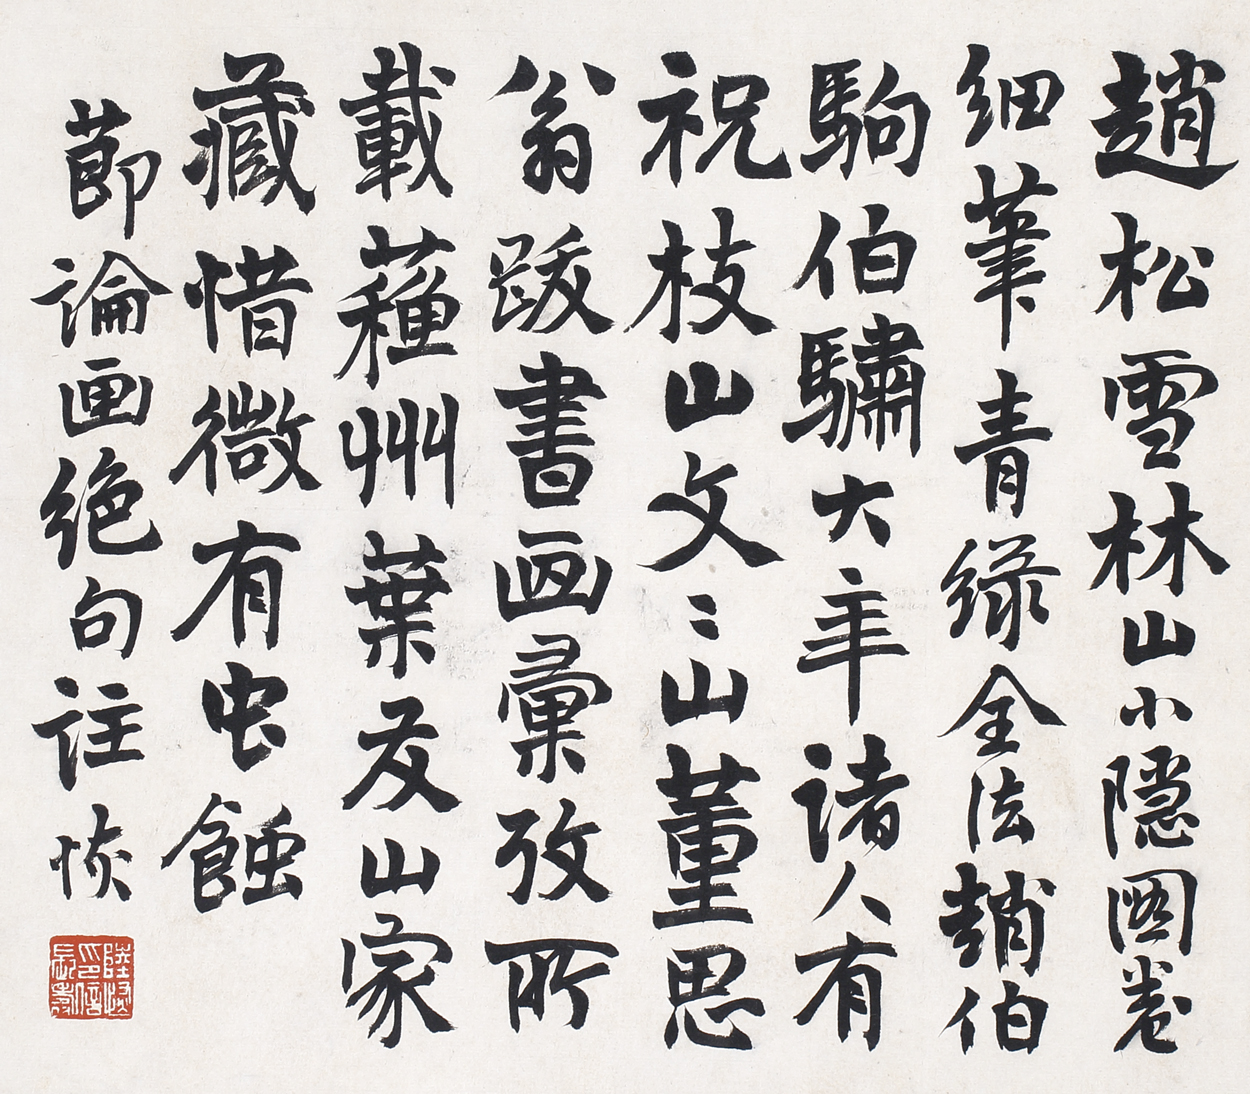 趙松雪林山小隱圖卷
細筆青綠全法趙伯
駒伯驌大年諸人有
祝枝山文〻山董思
翁跋書画彙攷所
載蘓州葉友山家
藏惜微有虫蝕
節論画絕句註恢
陸恢印信長壽